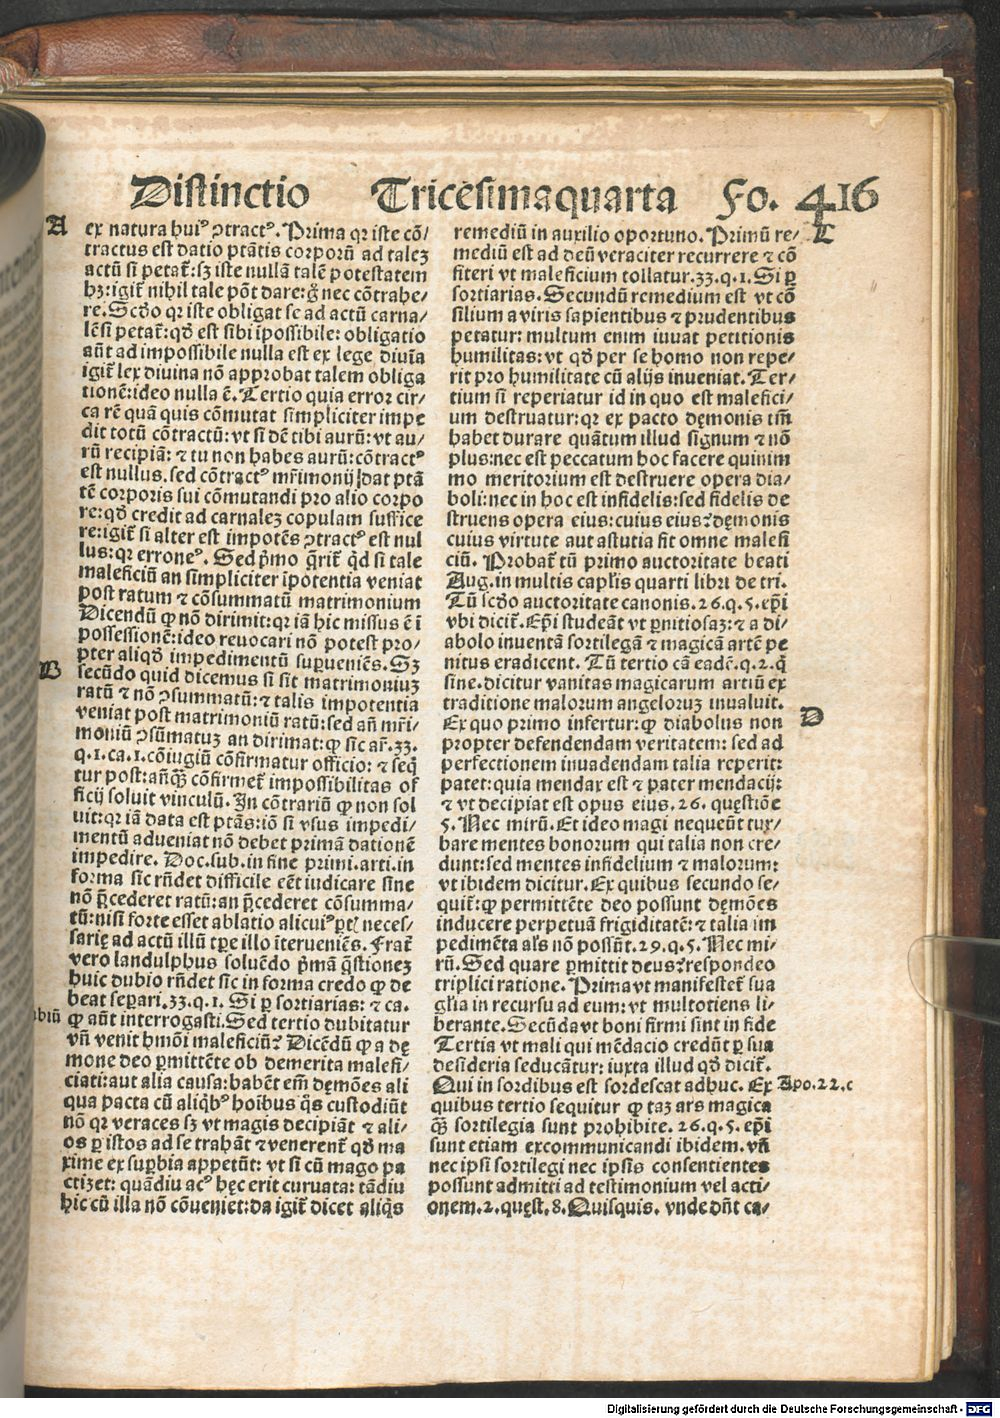 Distinctio Tricesimaquarta Fo. 416
A
ex natura huiꝰ ↄtractꝰ. Prima qꝛ iste cõ/
tractus est datio ptãtis corporũ ad talez
actũ si petat̃: sʒ iste nullã talẽ potestatem
hʒ: igit̃ nihil tale põt dare: g̃ nec cõtrahe/
re. Scðo qꝛ iste obligat se ad actũ carna/
lẽ si petat̃: qð est sibi ĩpossibile: obligatio
aũt ad impossibile nulla est ex lege diuĩa
igit̃ lex diuina nõ approbat talem obliga
tionẽ: ideo nulla ẽ. Tertio quia error cir/
ca rẽ quã quis cõmutat simpliciter impe
dit totũ cõtractũ: vt si dẽ tibi aurũ: vt au/
rũ recipiã: ⁊ tu non habes aurũ: cõtractꝰ
est nullus. sed cõtractꝰ mr̃imonij dat ptã
tẽ corporis sui cõmutandi pro alio corpo
re: qð credit ad carnalez copulam suffice
re: igit̃ si alter est impotẽs ↄtractꝰ est nul
lus: qꝛ erroneꝰ. Sed pͥmo q̃rit̃ qͥd si tale
maleficiũ an simpliciter ĩpotentia veniat
post ratum ⁊ cõsummatũ matrimonium
Dicendũ ꝙ nõ dirimit: qꝛ iã hic missus ẽ ĩ
possessionẽ: ideo reuocari nõ potest pro/
pter aliqð impedimentũ suꝑueniẽs. Sʒ
B
secũdo quid dicemus si sit matrimoniuz
ratũ ⁊ nõ ↄsummatũ: ⁊ talis impotentia
veniat post matrimoniũ ratũ: sed añ mr̃i/
moniũ ↄsũmatuz an dirimat: ꝙ sic ar̃. 33.
q. 1. ca. 1. cõiugiũ cõfirmatur officio: ⁊ seq̃
tur post: añq̃ʒ cõfirmet̃ impossibilitas of
ficij soluit vinculũ. In cõtrariũ ꝙ non sol
uit: qꝛ iã data est ptãs: iõ si vsus impedi/
mentũ adueniat nõ debet primã dationẽ
impedire. Doc. sub. in fine primi. arti. in
forma sic rñdet difficile eẽt iudicare sine
nõ p̃cederet ratũ: an p̃cederet cõsumma/
tũ: nisi forte esset ablatio alicuiꝰ ꝑt neces/
sarię ad actũ illũ tp̃e illo ĩterueniẽs. Frat̃
vero landulphus soluẽdo pͥmã q̃stionez
huic dubio rñdet sic in forma credo ꝙ de
beat seꝑari. 33. q. 1. Si ꝑ sortiarias: ⁊ ca.
biũ
ꝙ aũt interrogasti. Sed tertio dubitatur
vñ venit hmõi maleficiũ? Dicẽdũ ꝙ a dę
mone deo ꝑmittẽte ob demerita malefi/
ciati: aut alia causa: habẽt em̃ dęmões ali
qua pacta cũ aliqͥbꝰ hoĩbus q̃s custodiũt
nõ qꝛ veraces sʒ vt magis decipiãt ⁊ ali/
os ꝑ istos ad se trahãt ⁊ venerent̃ qð ma
xime ex suꝑbia appetũt: vt si cũ mago pa
ctizet: quãdiu acꝰ hęc erit curuata: tãdiu
hic cũ illa nõ cõueniet: da igit̃ dicet aliq̃s
C
remediũ in auxilio oportuno. Primũ re/
mediũ est ad deũ veraciter recurrere ⁊ cõ
fiteri vt maleficium tollatur. 33. q. 1. Si ꝑ
sortiarias. Secundũ remedium est vt cõ
silium a viris sapientibus ⁊ prudentibus
petatur: multum enim iuuat petitionis
humilitas: vt qð per se homo non repe/
rit pro humilitate cũ alijs inueniat. Ter/
tium si reperiatur id in quo est malefici/
um destruatur: qꝛ ex pacto dęmonis tm̃
habet durare quãtum illud signum ⁊ nõ
plus: nec est peccatum hoc facere quinim
mo meritorium est destruere opera dia/
boli: nec in hoc est infidelis: sed fidelis de
struens opera eius: cuius eius? dęmonis
cuius virtute aut astutia fit omne malefi
ciũ. Probat̃ tũ primo auctoritate beati
Aug. in multis capl̃is quarti libri de tri.
Tũ scðo auctoritate canonis. 26. q. 5. ep̃i
vbi dicit̃. Ep̃i studeãt vt ꝑnitiosaʒ: ⁊ a di/
abolo inuentã sortilegã ⁊ magicã artẽ pe
nitus eradicent. Tũ tertio cã eadẽ. q. 2. q̃
sine. dicitur vanitas magicarum artiũ ex
traditione malorum angelorum inualuit.
D
Ex quo primo infertur: ꝙ diabolus non
propter defendendam veritatem: sed ad
perfectionem inuadendam talia reperit:
patet: quia mendax est ⁊ pater mendacij:
⁊ vt decipiat est opus eius. 26. quęstiõe
5. Nec mirũ. Et ideo magi nequeũt tur/
bare mentes bonorum qui talia non cre/
dunt: sed mentes infidelium ⁊ malorum:
vt ibidem dicitur. Ex quibus secundo se/
quit̃: ꝙ permittẽte deo possunt dęmões
inducere perpetuã frigiditatẽ: ⁊ talia im
pedimẽta al̃s nõ possũt. 29. q. 5. Nec mi/
rũ. Sed quare ꝑmittit deus? respondeo
triplici ratione. Prima vt manifestet̃ sua
gl̃ia in recursu ad eum: vt multotiens li/
berante. Secũda vt boni firmi sint in fide
Tertia vt mali qui mẽdacio credũt ꝑ sua
desideria seducãtur: iuxta illud qð dicit̃.
Qui in sordibus est sordescat adhuc. Ex
Apo. 22. c
quibus tertio sequitur ꝙ taʒ ars magica
q̃ʒ sortilegia sunt prohibite. 26. q. 5. ep̃i
sunt etiam excommunicandi ibidem. vñ
nec ipsi sortilegi nec ipsis consentientes
possunt admitti ad testimonium vel acti/
onem. 2. quęst. 8. Quisquis. vnde dñt ca/
Digitalisierung gefördert durch die Deutsche Forschungsgemeinschaft - DFG